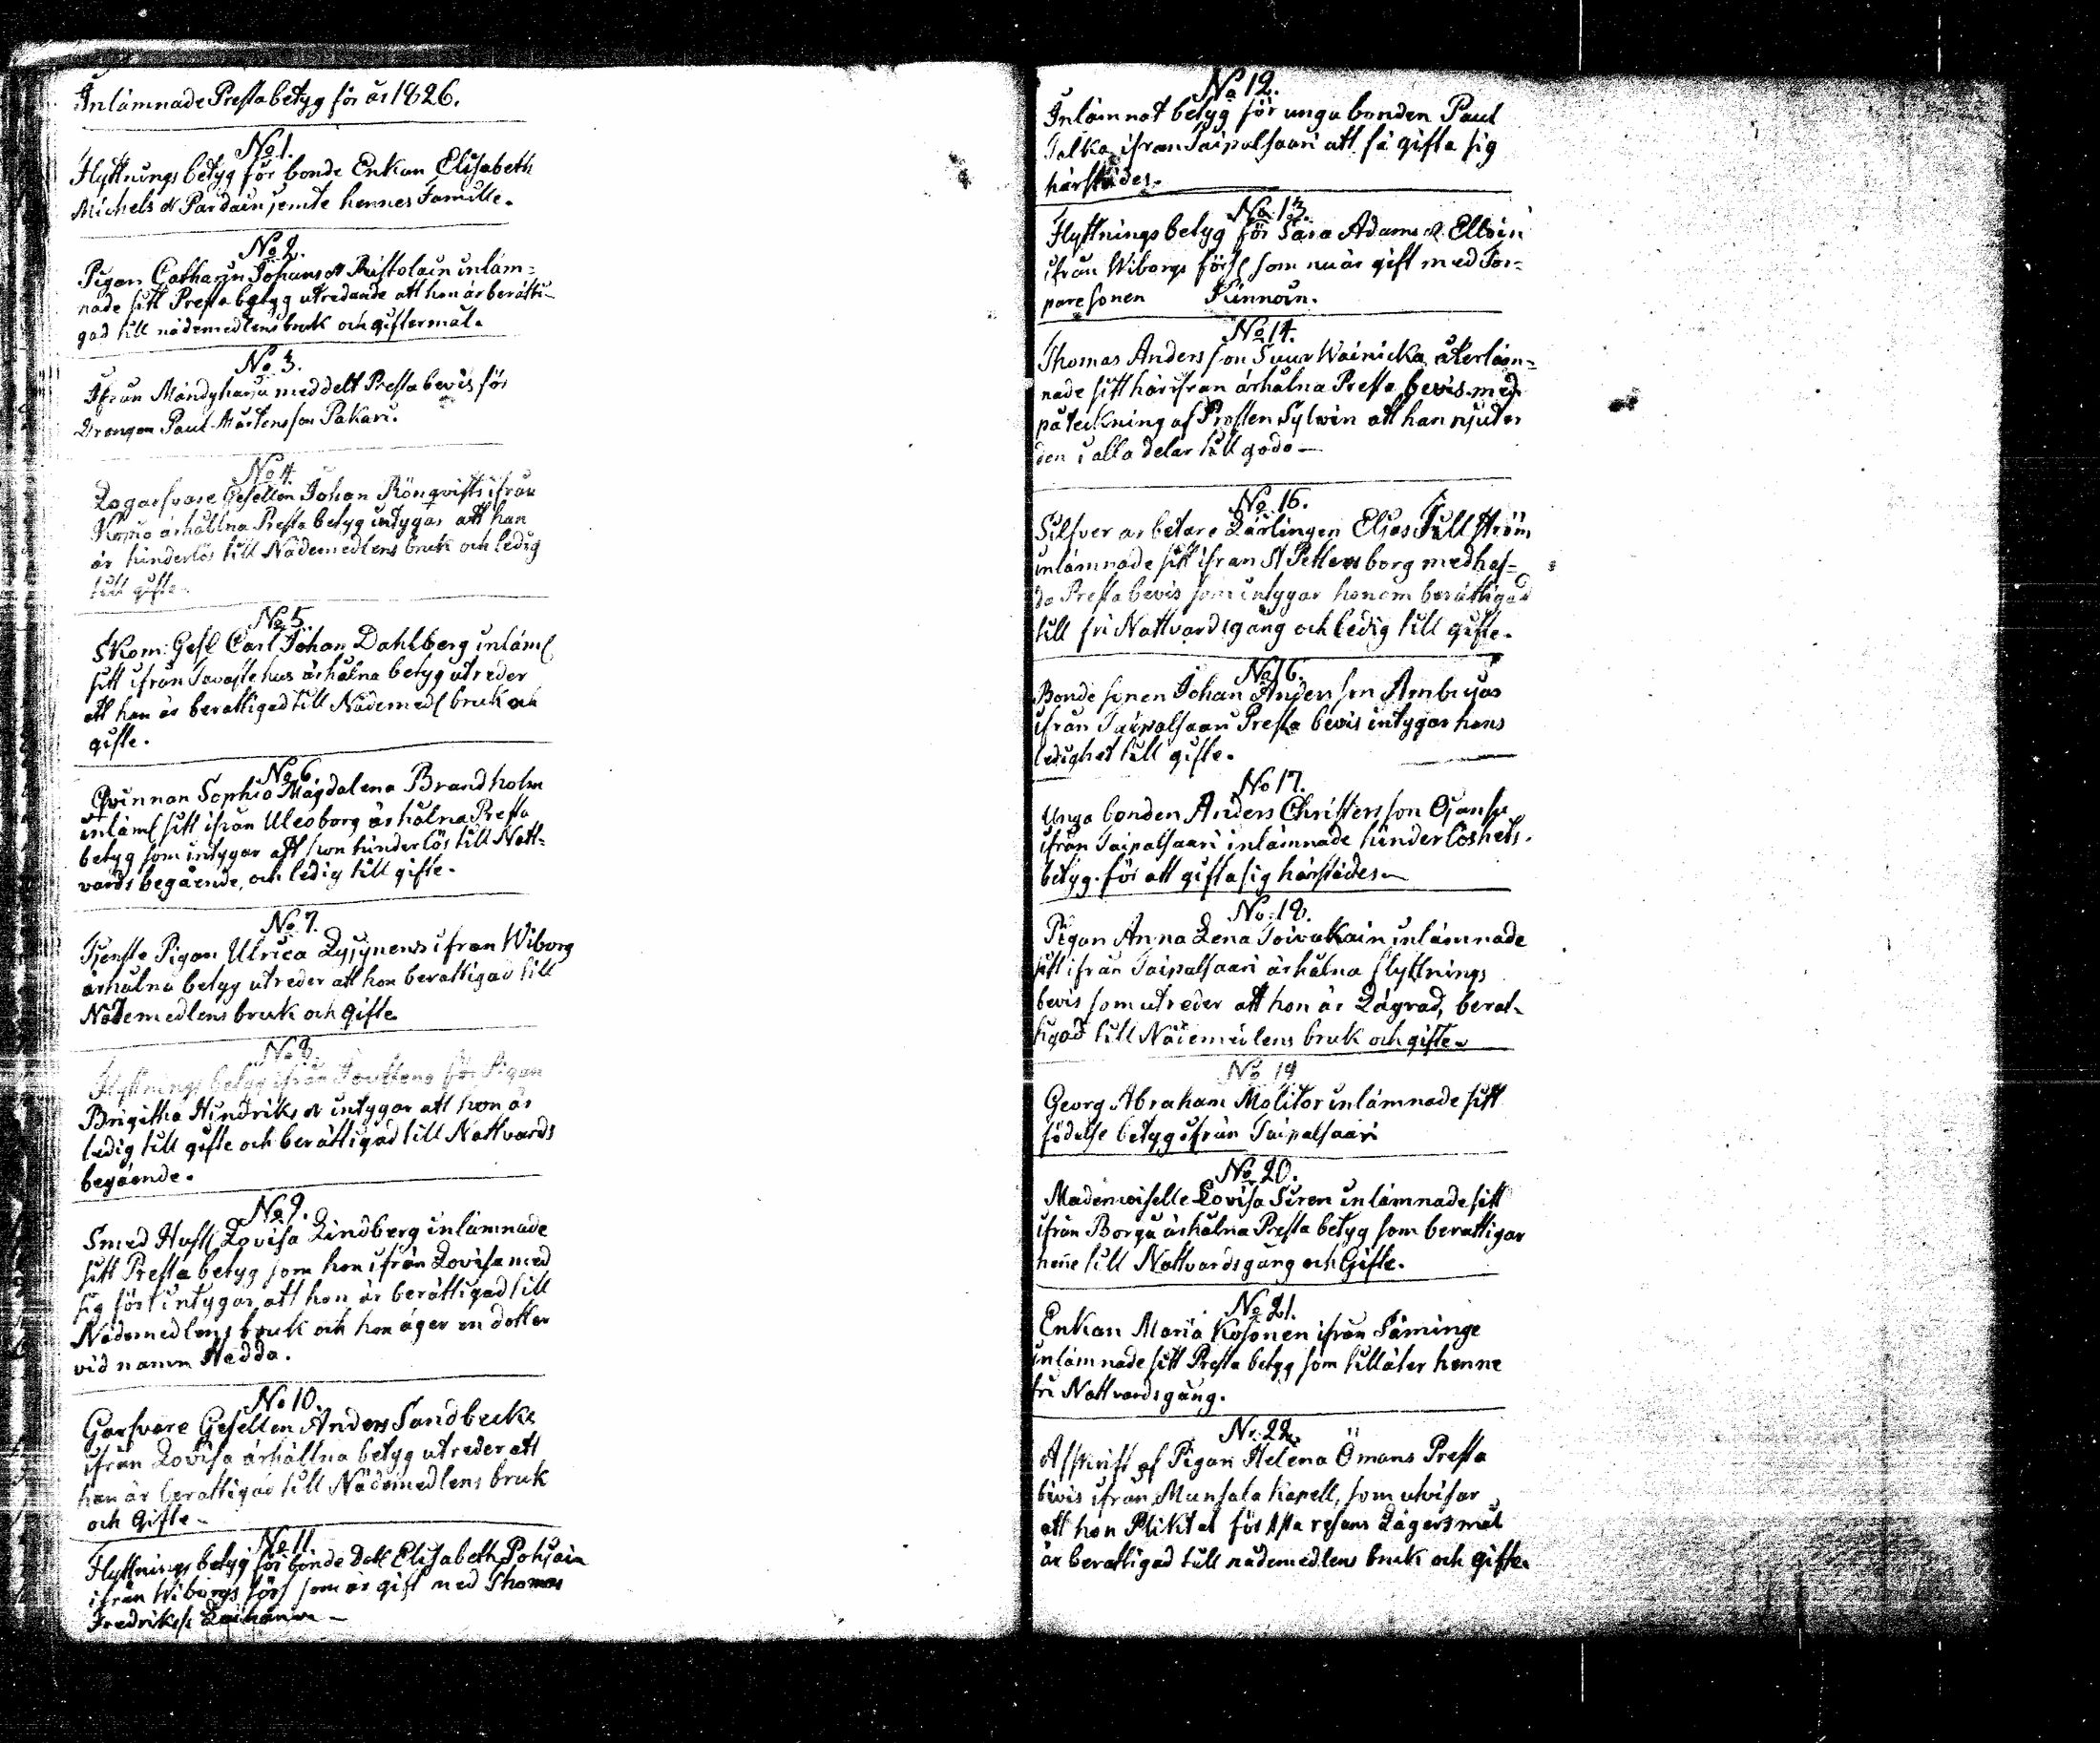 Inlämnade Prestabetyg för år 1826.
No 1.
Flyttnings betyg för bonde Enkan Elisabeth
Michels dr Pardain jemte hennes Familie.
No 2.
Pigan Catharin Johans dr Ristolain inläm=
nade sitt Presta betyg utredande att hon är berätti-
gad till nådemedlens bruk och giftermål.
No 3.
Ifrån Mändyharju meddelt Prestabevis för
Drengen Paul Mårtensson Pakari.
No 4.
Logarfvare Gesellen Johan Rönqvists ifrån
århållna Presta betyg intygar att han
är hinderlös till Nådemedlens bruk och ledig
till gifte.
No 5.
Skom: Gesl Carl Johan Dahlberg inläml
sitt ifrån Tavastehus århålna betyg utreder
att han är berättigad till Nådemedl bruk och
gifte.
No 6.
Qvinnan Sophia Magdalena Brandholm
inläml sitt ifrån Uleoborg århålna Presta
betyg som intygar att hon hinderlös till Natt=
vards begående, och ledig till gifte.
No 7.
Tjenste Pigan Ulrica ifrån Wiborg
århålna betyg utreder att hon berättigad till
Nådemedlens bruk och Gifte
No 8.
Flyttnings betyg ifrån Joutseno för Pigan
Brigitha Hindriks dr intygar att hon är
ledig till gifte och berättigad till Nattvards
begående.
No 9.
Smed Hust Lovisa Lindberg inlämnade
sitt Presta betyg som hon ifrån Lovisa med
sig fört intygar att hon är berättigad till
Nådemedlens bruk och hon äger en dotter
vid namn Hedda.
No 10.
Garfvare Gesellen Anders Sandbeck
ifrån Lovisa århållna betyg utreder att
han är berättigad till Nådemedlens bruk
och Gifte
No 11.
Flyttnings betyg för bonde Dott Elisabeth Pohjain
ifrån Wiborgs förs som är gift med Thomas
Fredrikss
No 12.
Inlämnat betyg för unga bonden Paul
Talka ifrån Taipalsaari att få gifta sig
härstädes.
No. 13.
Flyttnings betyg för Sara Adams dr
ifrån Wiborgs förs som nu är gift med Tor-
pare sonen Kinnoin.
No 14.
Thomas Andersson Suur Wainicka återläm=
nade sitt härifrån århålna Presta bevis med
påteckning af Prosten Sylwin att han njuter
den i alla delar till godo
No 15.
Silfver arbetare Lärlingen Elias
inlämnade sitt ifrån St Petersborg medhaf=
da Presta bevis som intygar honom berättigad
till fri Nattvardsgång och ledig till gifte.
No 16.
Bonde sonen Johan Andersson
ifrån Taipalsaari Presta bevis intygar hans
ledighet till gifte.
No 17.
Unga bonden Anders Christersson
ifrån Taipalsaari inlämnade hinderlöshets
betyg för att gifta sig härstädes
No. 18.
Pigan Anna Lena Toivakain inlämnade
sitt ifrån Taipalsaari århålna flyttnings
bevis som utreder att hon är Lägrad, berät-
tigad till Nådemedlens bruk och gifte
No 19
Georg Abraham Molitor inlämnade sitt
födelse betyg ifrån Taipalsaari
No 20.
Mademoiselle Lovisa Siren inlämnade sitt
ifrån Borgå århålna Presta betyg som berättigar
henne till Nattvardsgång och Gifte.
No 21.
Enkan Maria Kosonen ifrån Säminge
inlämnade sitt Presta betyg som tillåter henne
fri Nattvardsgång.
No. 22.
Afskrift af Pigan Helena Ömans Presta
bevis ifrån Munsala Kapell, som utvisar
att hon Pliktat för 1sta resans Lägersmål
är berättigad till nådemedlens bruk och gifte.